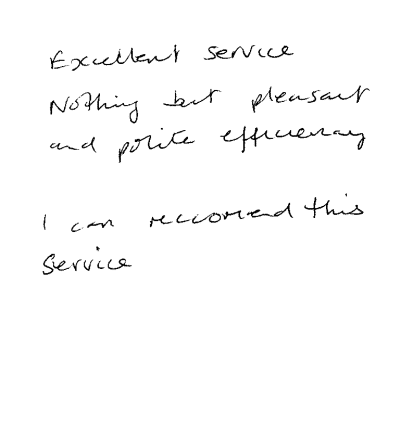 Excellent service
Nothing but pleasant
and polite efficiency
I can reccomend this
service